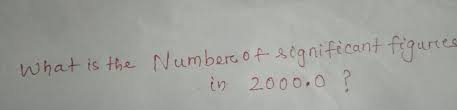 What is the Number of significant figures
in 2000.0 ?